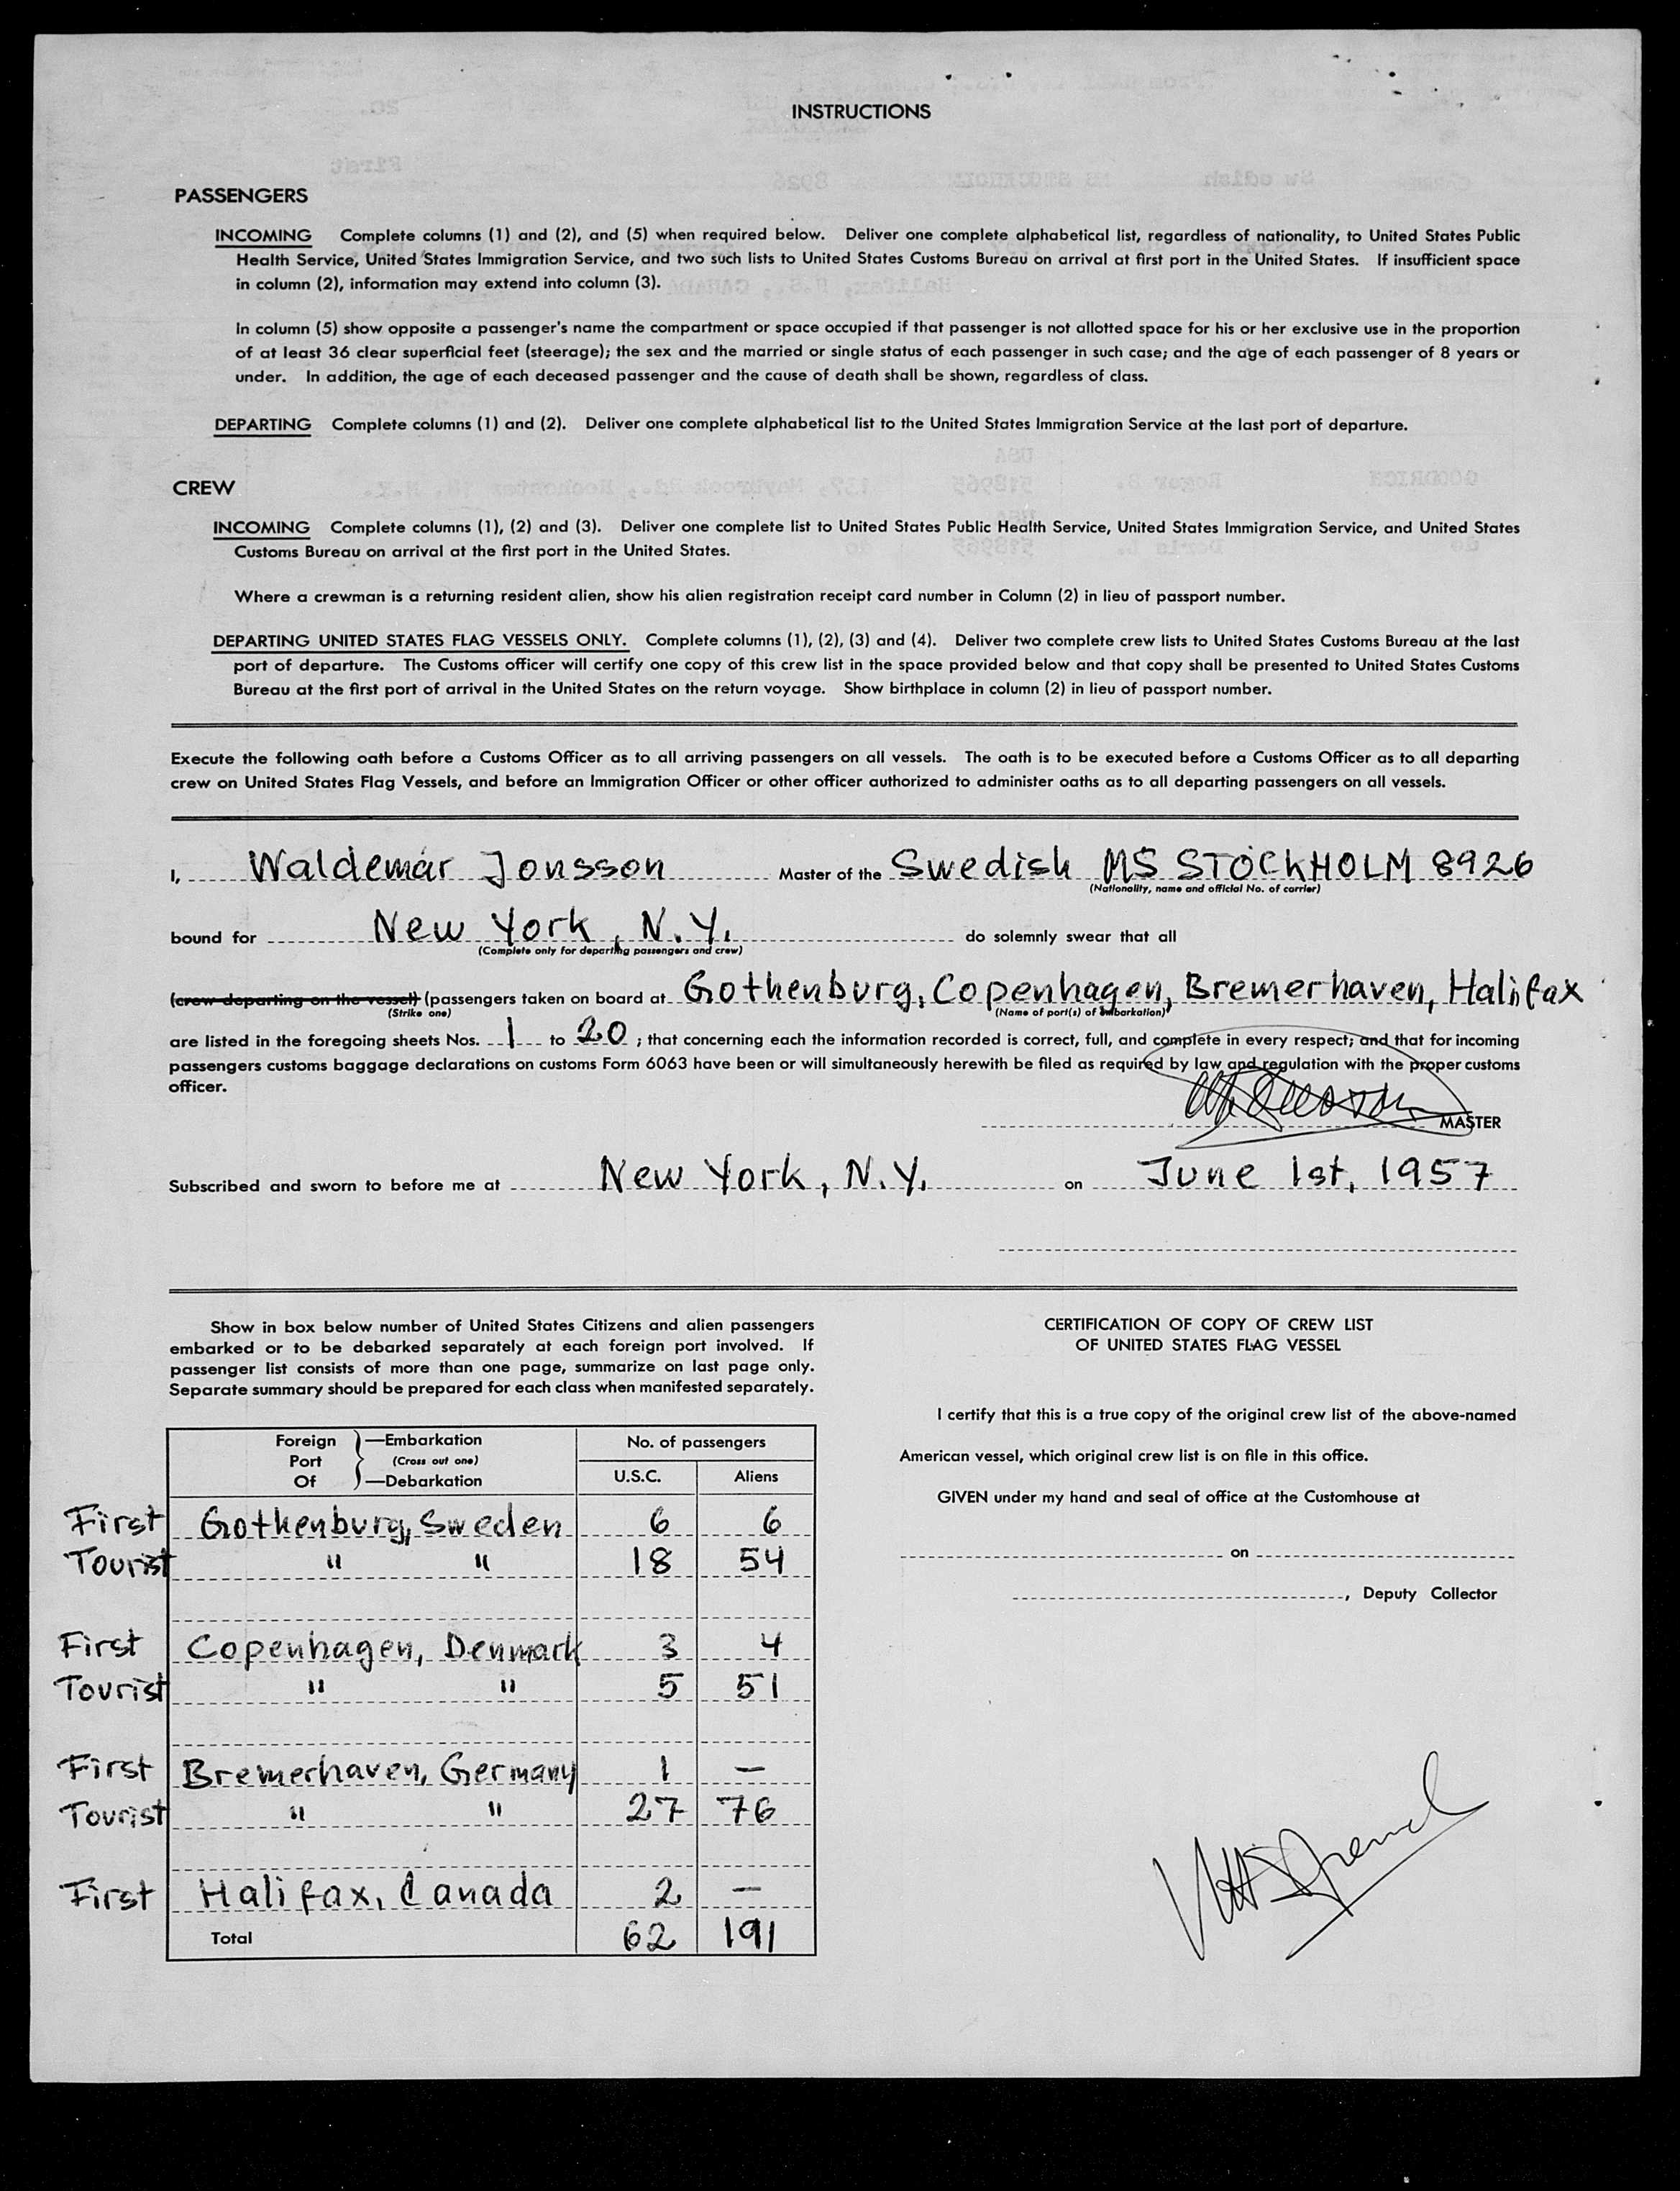 INSTRUCTIONS
PASSENGERS
INCOMING Complete columns (1) and (2), and (5) when required below. Deliver one complete alphabetical list, regardless of nationality, to United States Public
Health Service, United States Immigration Service, and two such lists to United States Customs Bureau on arrival at first port in the United States. If insufficient space
in column (2), information may extend into column (3).
In column (5) show opposite a passenger's name the compartment or space occupied if that passenger is not allotted space for his or her exclusive use in the proportion
of at least 36 clear superficial feet (steerage); the sex and the married or single status of each passenger in such case; and the age of each passenger of 8 years or
under. In addition, the age of each deceased passenger and the cause of death shall be shown, regardless of class.
DEPARTING Complete columns (1) and (2). Deliver one complete alphabetical list to the United States Immigration Service at the last port of departure.
CREW
INCOMING Complete columns (1), (2) and (3). Deliver one complete list to United States Public Health Service, United States Immigration Service, and United States
Customs Bureau on arrival at the first port in the United States.
Where a crewman is a returning resident alien, show his alien registration receipt card number in Column (2) in lieu of passport number.
DEPARTING UNITED STATES FLAG VESSELS ONLY. Complete columns (1), (2), (3) and (4). Deliver two complete crew lists to United States Customs Bureau at the last
port of departure. The Customs officer will certify one copy of this crew list in the space provided below and that copy shall be presented to United States Customs
Bureau at the first port of arrival in the United States on the return voyage. Show birthplace in column (2) in lieu of passport number.
Execute the following oath before a Customs Officer as to all arriving passengers on all vessels. The oath is to be executed before a Customs Officer as to all departing
crew on United States Flag Vessels, and before an Immigration Officer or other officer authorized to administer oaths as to all departing passengers on all vessels.
I, Waldemar Jonsson Master of the Swedish MS STOCKHOLM 8926
(Nationality, name and official No. of carrier)
bound for New York, N.Y. do solemnly swear that all
(Complete only for departing passengers and crew)
(crew departing on the vessel) (passengers taken on board at Gothenburg, Copenhagen, Bremerhaven, Halifax
(Strike one) (Name of port(s) of embarkation)
are listed in the foregoing sheets Nos. 1 to 20 ; that concerning each the information recorded is correct, full, and complete in every respect; and that for incoming
passengers customs baggage declarations on customs Form 6063 have been or will simultaneously herewith be filed as required by law and regulation with the proper customs
officer.
MASTER
Subscribed and sworn to before me at New York, N.Y. on June 1st, 1957
Show in box below number of United States Citizens and alien passengers
embarked or to be debarked separately at each foreign port involved. If
passenger list consists of more than one page, summarize on last page only.
Separate summary should be prepared for each class when manifested separately.
Foreign —Embarkation No. of passengers
Port (Cross out one)
Of —Debarkation U.S.C. Aliens
First Gothenburg, Sweden 6 6
Tourist " " 18 54
First Copenhagen, Denmark 3 4
Tourist " " 5 51
First Bremerhaven, Germany 1 —
Tourist " " 27 76
First Halifax, Canada 2 —
Total 62 191
CERTIFICATION OF COPY OF CREW LIST
OF UNITED STATES FLAG VESSEL
I certify that this is a true copy of the original crew list of the above-named
American vessel, which original crew list is on file in this office.
GIVEN under my hand and seal of office at the Customhouse at
on
, Deputy Collector